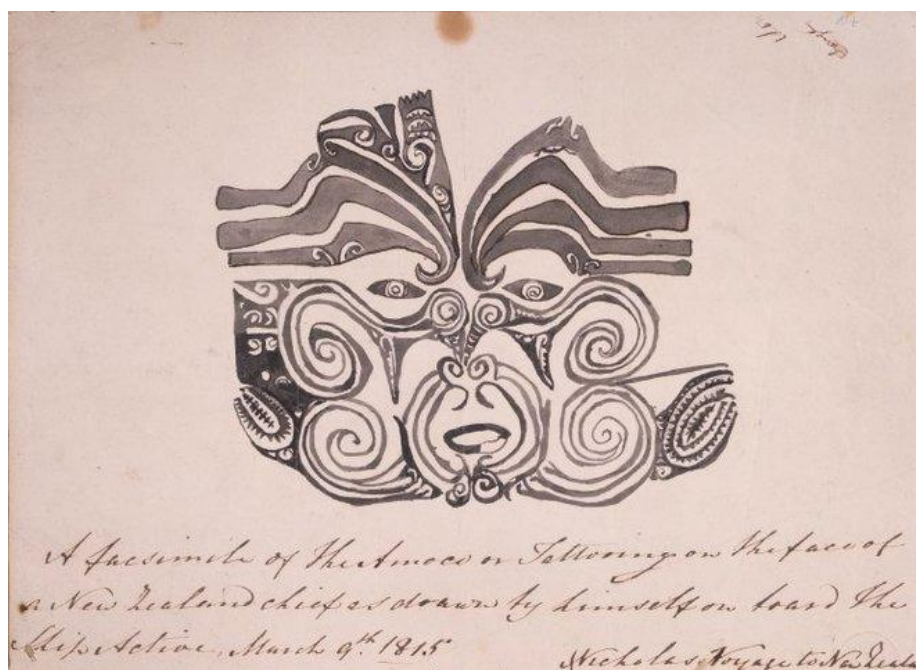 A facsimile of the Amoco or Tattooing on the face of
a New Zealand chief as drawn by himself on board the
Ship Active, March 9th 1815
Nicholas' Voyage to New Zeal